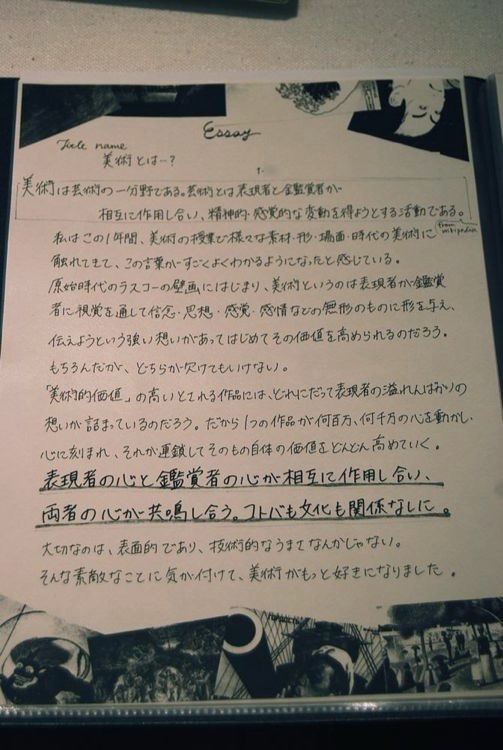 Essay
Title name
美術とは…?
美術は芸術の一分野である。芸術とは表現者と鑑賞者が
相互に作用し合い、精神的・感覚的な変動を得ようとする活動である。
from wikipedia
私はこの1年間、美術の授業で様々な素材・形・場面・時代の美術に
触れてきて、この言葉がすごくよくわかるようになったと感じている。
原始時代のラスコーの壁画にはじまり、美術というのは表現者が鑑賞
者に視覚を通して信念・思想・感覚・感情などの無形のものに形を与え、
伝えようという強い想いがあってはじめてその価値を高められるのだろう。
もちろんだが、どちらが欠けてもいけない。
「美術的価値」の高いとされる作品には、どれにだって表現者の溢れんばかりの
想いが詰まっているのだろう。だから1つの作品が何百万、何千万の心を動かし、
心に刻まれ、それが連鎖してそのもの自体の価値をどんどん高めていく。
表現者の心と鑑賞者の心が相互に作用し合い、
両者の心が共鳴し合う。コトバも文化も関係なしに。
大切なのは、表面的であり、技術的なうまさなんかじゃない。
そんな素敵なことに気が付けて、美術がもっと好きになりました。